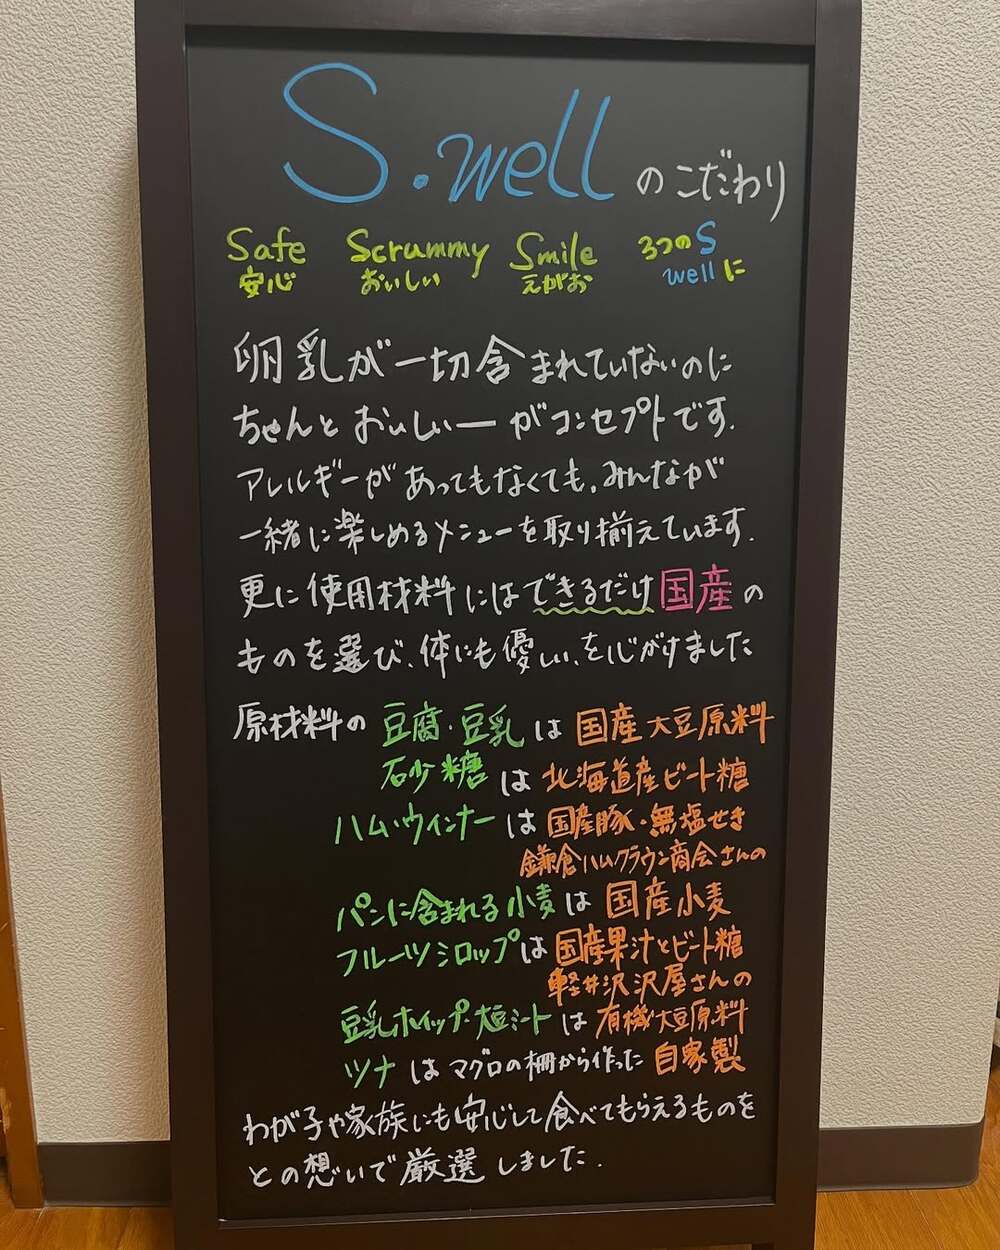 S.wellのこだわり
Safe Scrummy Smile 3つのS
安心 おいしい えがお wellに
卵乳が一切含まれていないのに
ちゃんとおいしいーがコンセプトです.
アレルギーがあってもなくても、みんなが
一緒に楽しめるメニューを取り揃えています.
更に使用材料にはできるだけ国産の
ものを選び、体にも優しい、を心がけました
原材料の豆腐・豆乳は国産大豆原料
砂糖は北海道産ビート糖
ハム・ウインナーは国産豚・無塩せき
鎌倉ハムクラウン商会さんの
パンに含まれる小麦は国産小麦
フルーツシロップは国産果汁とビート糖
軽井沢沢屋さんの
豆乳ホイップ・大豆ミートは有機大豆原料
ツナはマグロの柵から作った自家製
わが子や家族にも安心して食べてもらえるものを
との想いで厳選しました.